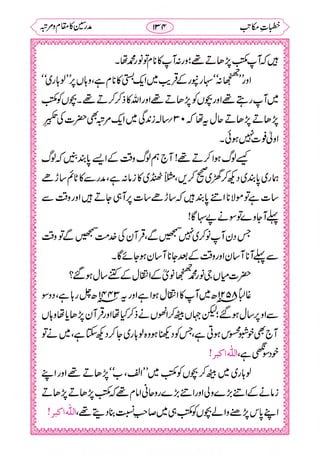 خطباتِ مکاتب
۱۳۴
مدرسین کا مقام ومرتبہ
ہیں کہ آپ مکتب پڑھاتے تھے؛ ورنہ آپ کا نام تو نور محمد تھا۔
اور "جھنجھانہ" سہارنپور کے قریب میں ایک بستی کا نام ہے، وہاں پر "لوہاری"
میں آپ رہتے تھے اور بچوں کو پڑھاتے تھے اور اللہ کا ذکر کرتے تھے۔ بچوں کو مکتب
پڑھاتے پڑھاتے یہ حال تھا کہ ۳۰ رسالہ زندگی میں ایک مرتبہ بھی حضرت کی تکبیرِ
اولیٰ فوت نہیں ہوئی۔
کیسے لوگ ہوا کرتے تھے! آج ہم لوگ وقت کے ایسے پابند بنیں کہ لوگ
ہماری پابندی دیکھ کر گھڑی صحیح کریں، مثلاً: گرمی کا زمانہ ہے، مدرسے کا ٹائم ساڑھے
سات ہے تو مولانا اتنے پابند ہیں کہ ساڑھے سات پر آہی جاتے ہیں اور وقت سے
پہلے آوے تو سونے پہ سہاگہ!
جس دن آپ نوکری نہیں سمجھیں گے، قرآن کی خدمت سمجھیں گے تو وقت
سے پہلے آنا آسان اور وقت کے بعد جانا آسان ہو جائے گا۔
حضرت میاں جی نور محمد جھنجھانویؒ کے انتقال کے کتنے سال ہو گئے؟
غالباً ۱۲۵۸ھ میں آپ کا انتقال ہوا ہے اور یہ ۱۴۴۳ھ چل رہا ہے، دو سو
سال سے اوپر ہو گئے؛ لیکن جہاں بیٹھ کر انھوں نے ذکر کیا تھا اور قرآن پڑھایا تھا وہاں
آج بھی خوشبو محسوس ہوتی ہے، جس کو دیکھنا ہو وہ لوہاری جا کر دیکھ سکتا ہے، میں نے تو
خود سونگھی ہے، اللہ اکبر!
لوہاری میں بیٹھ کر بچوں کو مکتب میں "الف، ب" پڑھاتے تھے اور اپنے
زمانے کے اتنے بڑے ولی اور اتنے بڑے روحانی امام تھے کہ مکتب پڑھاتے پڑھاتے
اپنے پاس پڑھنے والے بچوں کو مکتب ہی میں صاحبِ نسبت بنا دیتے تھے، اللہ اکبر!